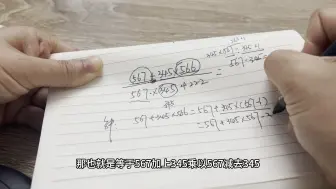 567+345×566
567×345+222
解: 567+345×566=567+345×(567-1)
=567+345×567-3
那也就是等于567加上345乘以567减去345